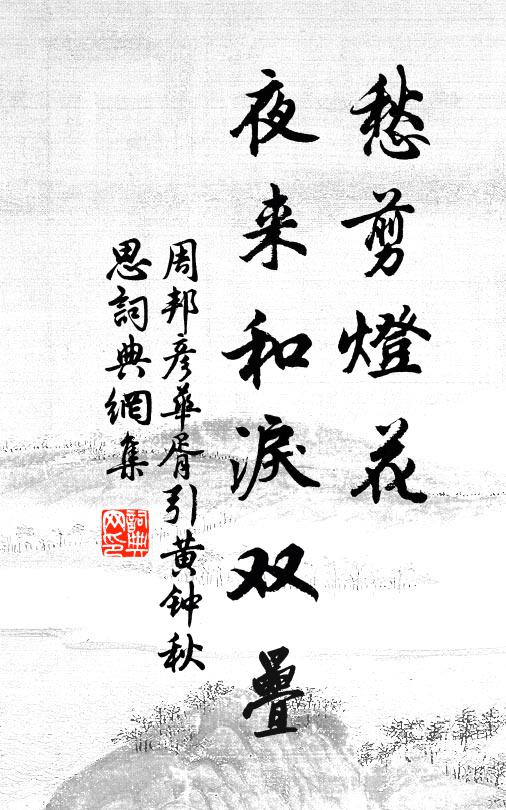 愁剪燈花
夜来和淚双疊
周邦彦華胥引黄钟秋
思詞典網集
詞典
网印